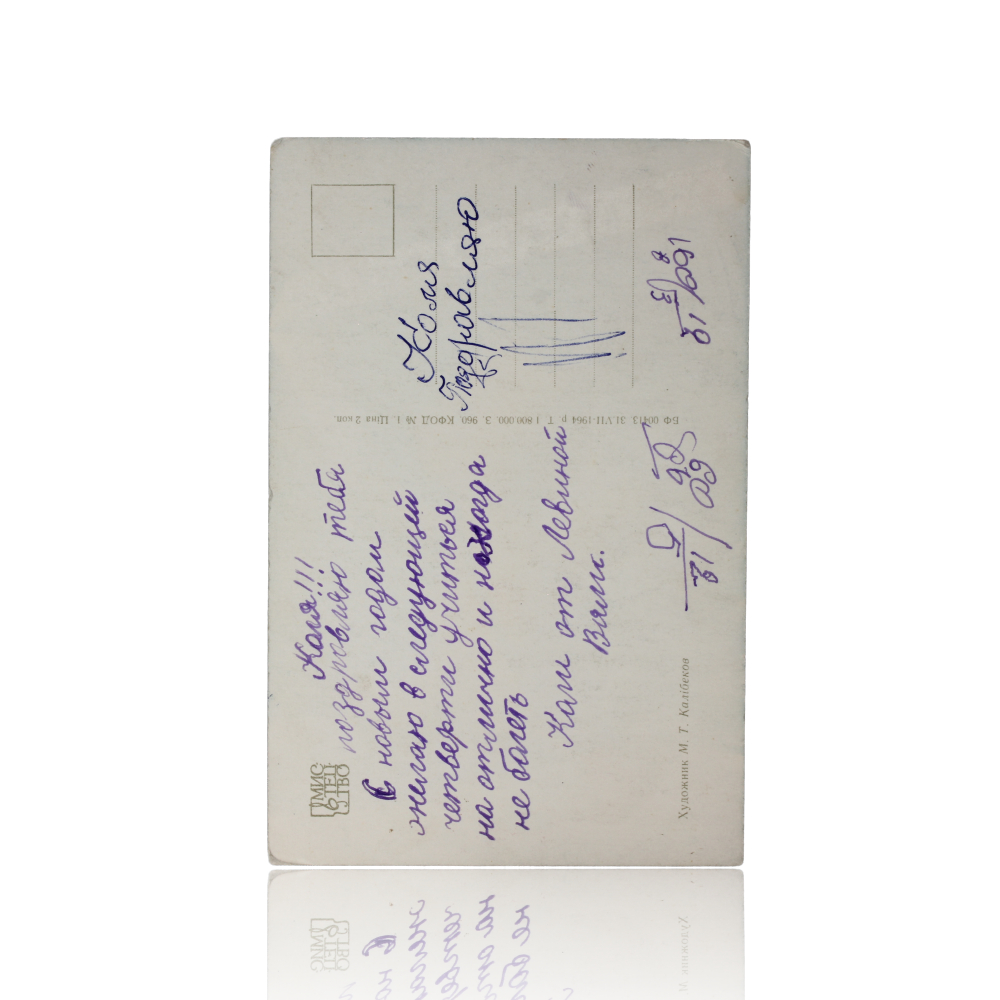 МИС
ТЕЦ
ТВО
Коля!!!
поздровляю тебя
С новым годом
желаю в следующей
четверти учиться
на отлично и никогда
не болеть
Коли от Левиной
Вали.
Художник М. Т. Калібеков
БФ 00413. 31.VII-1964 р. Т. 1 800.000. З. 960. КФОД № 1. Ціна 2 коп.
Коля
Поздравляю